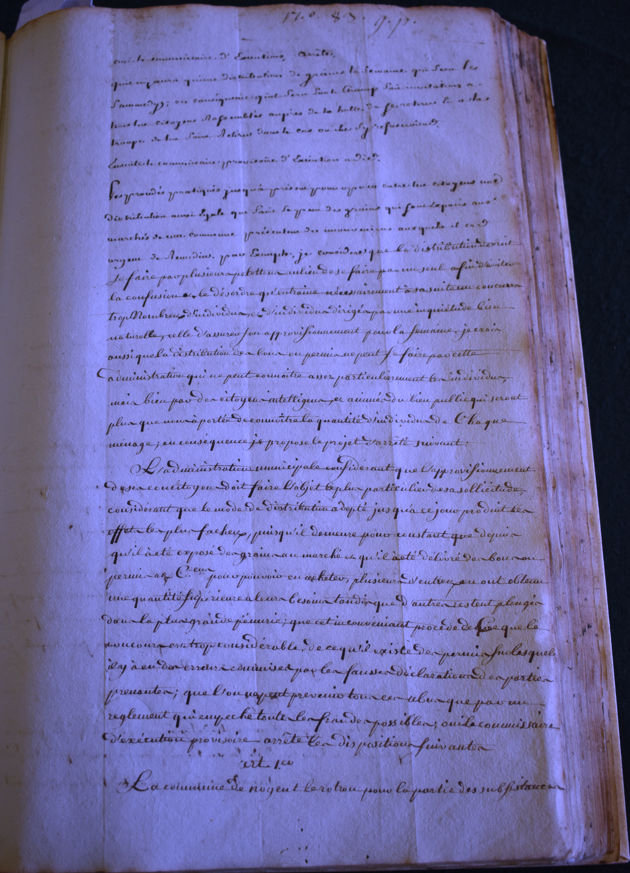 17.e 83. g.p.
oui le commissaire d'Exécution, arrête,
qu'il y aura qu'une distribution de grains la Semaine, qui Sera les
Samedys; en conséquence qu'il Sera Sur le Champ fait invitation à
tous les citoyens Rassemblés auprès de la halle de se retirer et à la
troupe de les faire Retirer dans le cas où ils S'y refuseroient.
Ensuite le commissaire provisoire d'Exécution a dit
Les procédés pratiqués jusqu'à présent pour opérer entre les citoyens une
distribution aussi Egale que faire Se peut des grains qui Sont Exposés aux
marchés de cette commune présentent des inconvéniens auxquels il est
urgent de Remédier, par Exemple, je considère que la distribution devroit
Se faire par plusieurs petits au lieu de se faire par une seul afin d'éviter
la confusion et le désordre qu'entraine nécessairement à sa suite un concours
trop Nombreux d'individus, et d'individus dirigés par une inquiétude bien
naturelle, celle d'assurer son approvisionnement pour la semaine, je crois
aussi que la distribution des bons ou permis ne peut se faire par cette
administration qui ne peut connoître assez particulièrement les individus,
mais bien par des citoyens intelligens et animés du bien public qui seront
plus que nous à portée de connoître la quantité d'individus de Chaque
ménage; en conséquence je propose le projet d'arrêté suivant:
L'administration municipale considérant que l'approvisionnement
de ses concitoyens doit faire l'objet le plus particulier de sa sollicitude,
considérant que le mode de distribution adopté jusqu'à ce jour produit les
effets les plus facheux, puisqu'il demeure pour constant que depuis
qu'il a été exposé des grains au marché et qu'il a été délivré des bons ou
permis aux C.ens pour pouvoir en acheter, plusieurs d'entreux en ont obtenu
une quantité supérieure à leurs besoins tandis que d'autres restent plongés
dans la plus grande pénurie; que cet inconvéniant procède de ce que le
concours est trop considérable, de ce qu'il existe des permis sur lesquels
il y a eu des erreurs commises par les fausses déclarations des parties
prenantes; que l'on ne peut prévenir tous ces abus que par un
règlement qui empeche toutes les fraudes possibles; oui le commissaire
d'exécution provisoire arrête les dispositions suivantes
Art. 1.er
La commune de nogent le rotrou pour la partie des subsistances